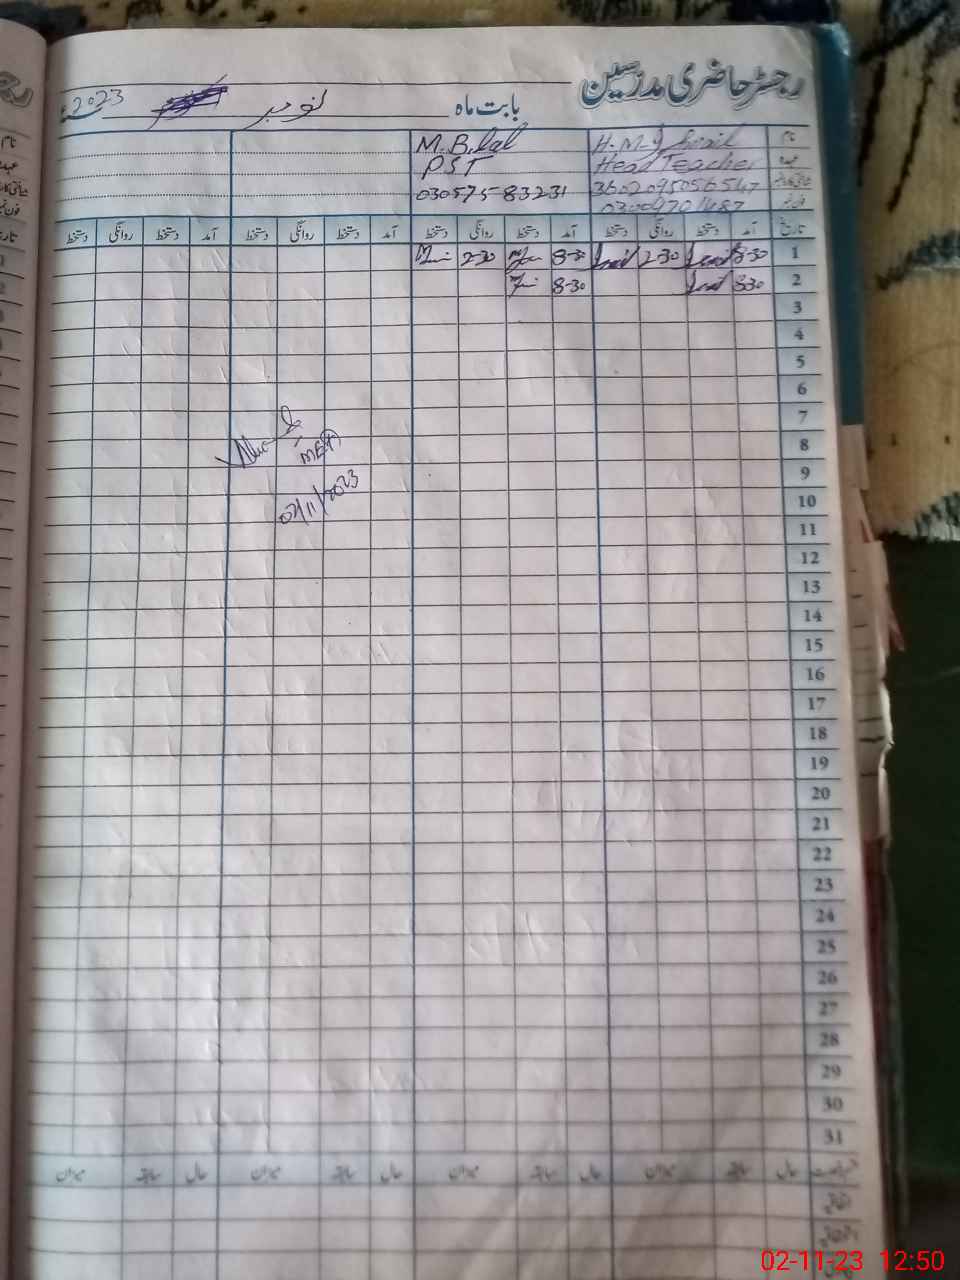 رجسٹر حاضری مدرسین
بابت ماہ نومبر 2023ء
نام H.M. Ismail M. Bilal
عہدہ Head Teacher PST
شناختی کارڈ نمبر 3602095056547 03057583231
فون نمبر 03004701487
تاریخ آمد دستخط روانگی دستخط آمد دستخط روانگی دستخط آمد دستخط روانگی دستخط آمد دستخط روانگی دستخط
1 8-30 2-30 8-30 2-30
2 8-30 8-30
3
4
5
6
7
8
MEA
9
02/11/2023
10
11
12
13
14
15
16
17
18
19
20
21
22
23
24
25
26
27
28
29
30
31
حال سابقہ میزان حال سابقہ میزان حال سابقہ میزان حال سابقہ میزان
اتفاقیہ
02-11-23 12:50